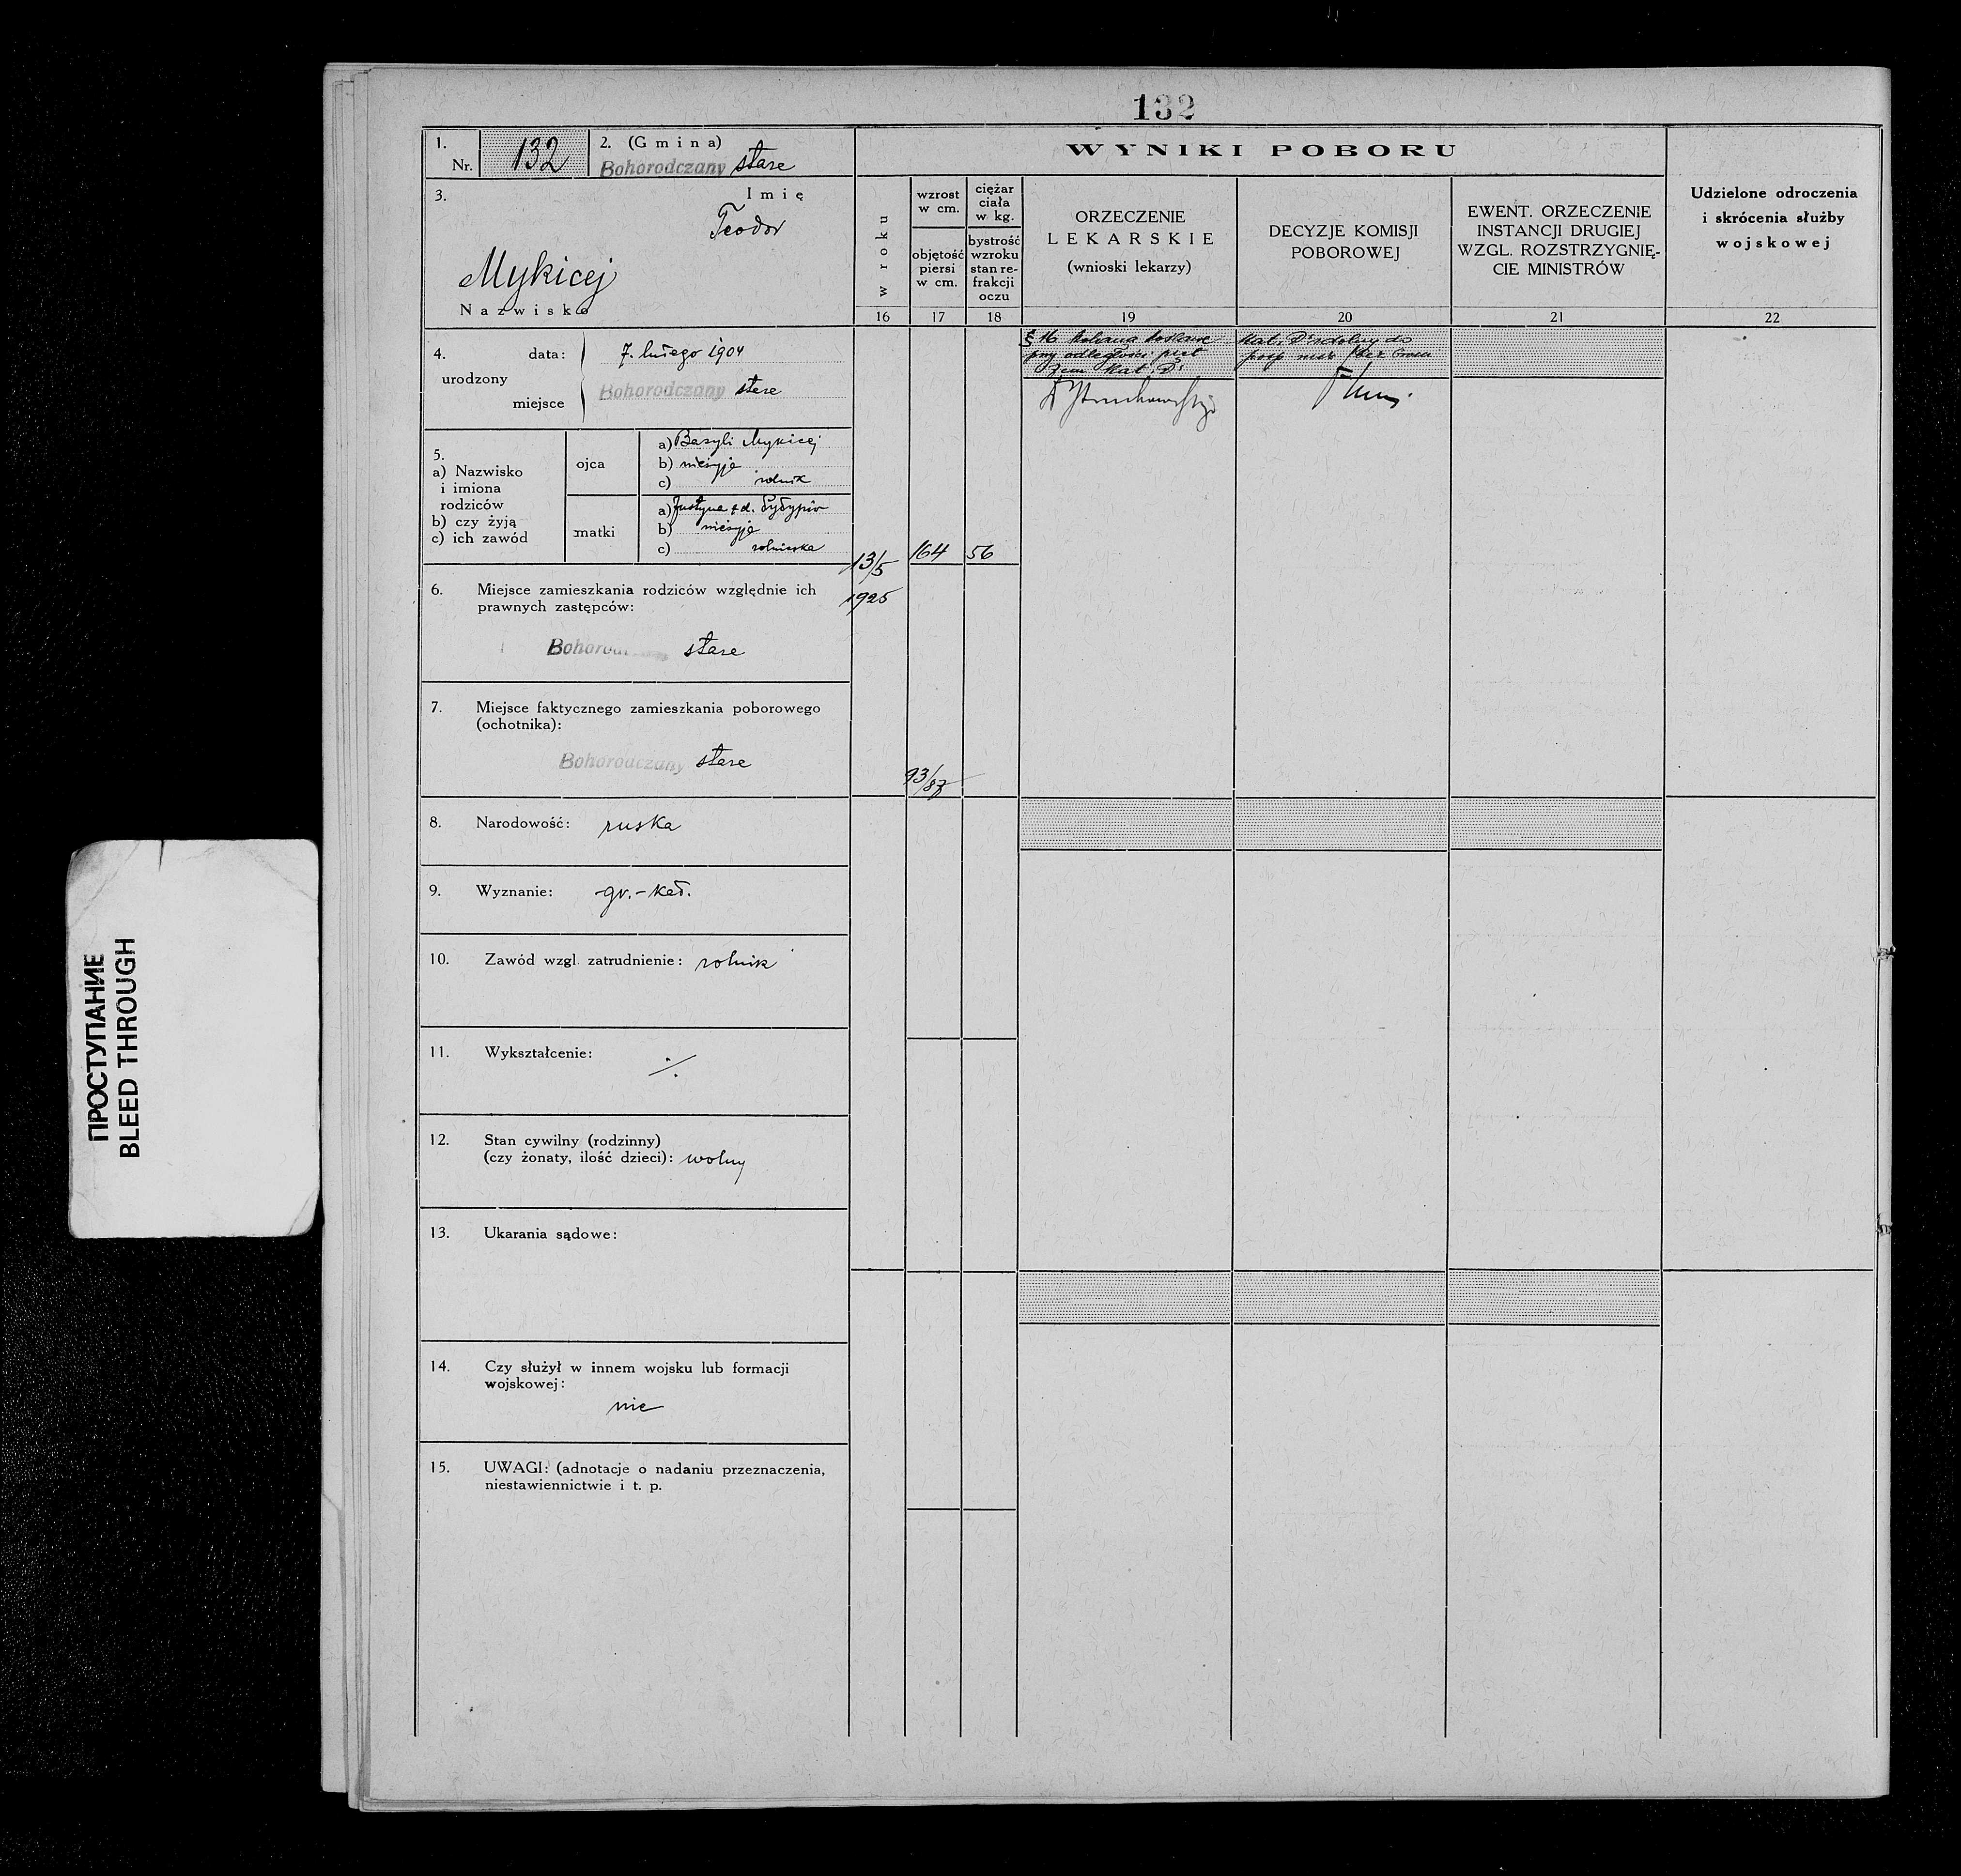 132
1.
Nr. 132
2. (Gmina)
Bohorodczany stare
3. Imię
Teodor
Mykicej
Nazwisko
4. urodzony
data: 7. lutego 1904
miejsce Bohorodczany stare
5.
a) Nazwisko
i imiona
rodziców
b) czy żyją
c) ich zawód
ojca
a) Bazyli Mykicej
b) nieżyje
c) rolnik
matki
a) Justyna z d.
b) nieżyje
c)
6. Miejsce zamieszkania rodziców względnie ich
prawnych zastępców:
stare
7. Miejsce faktycznego zamieszkania poborowego
(ochotnika):
Bohorodczany stare
8. Narodowość: ruska
9. Wyznanie: gr.-kat.
10. Zawód wzgl. zatrudnienie: rolnik
11. Wykształcenie: ./.
12. Stan cywilny (rodzinny)
(czy żonaty, ilość dzieci): wolny
13. Ukarania sądowe:
14. Czy służył w innem wojsku lub formacji
wojskowej:
nie
15. UWAGI: (adnotacje o nadaniu przeznaczenia,
niestawiennictwie i t. p.
WYNIKI POBORU
w roku
16
13/5
1925
wzrost
w cm.
objętość
piersi
w cm.
17
164
93/87
ciężar
ciała
w kg.
bystrość
wzroku
stan re-
frakcji
oczu
18
56
ORZECZENIE
LEKARSKIE
(wnioski lekarzy)
19
§ 16 kolana
przy odległości pięt
Kat.
DECYZJE KOMISJI
POBOROWEJ
20
Kat. zdolny do
EWENT. ORZECZENIE
INSTANCJI DRUGIEJ
WZGL. ROZSTRZYGNIĘ-
CIE MINISTRÓW
21
Udzielone odroczenia
i skrócenia służby
wojskowej
22
ПРОСТУПАНИЕ
BLEED THROUGH